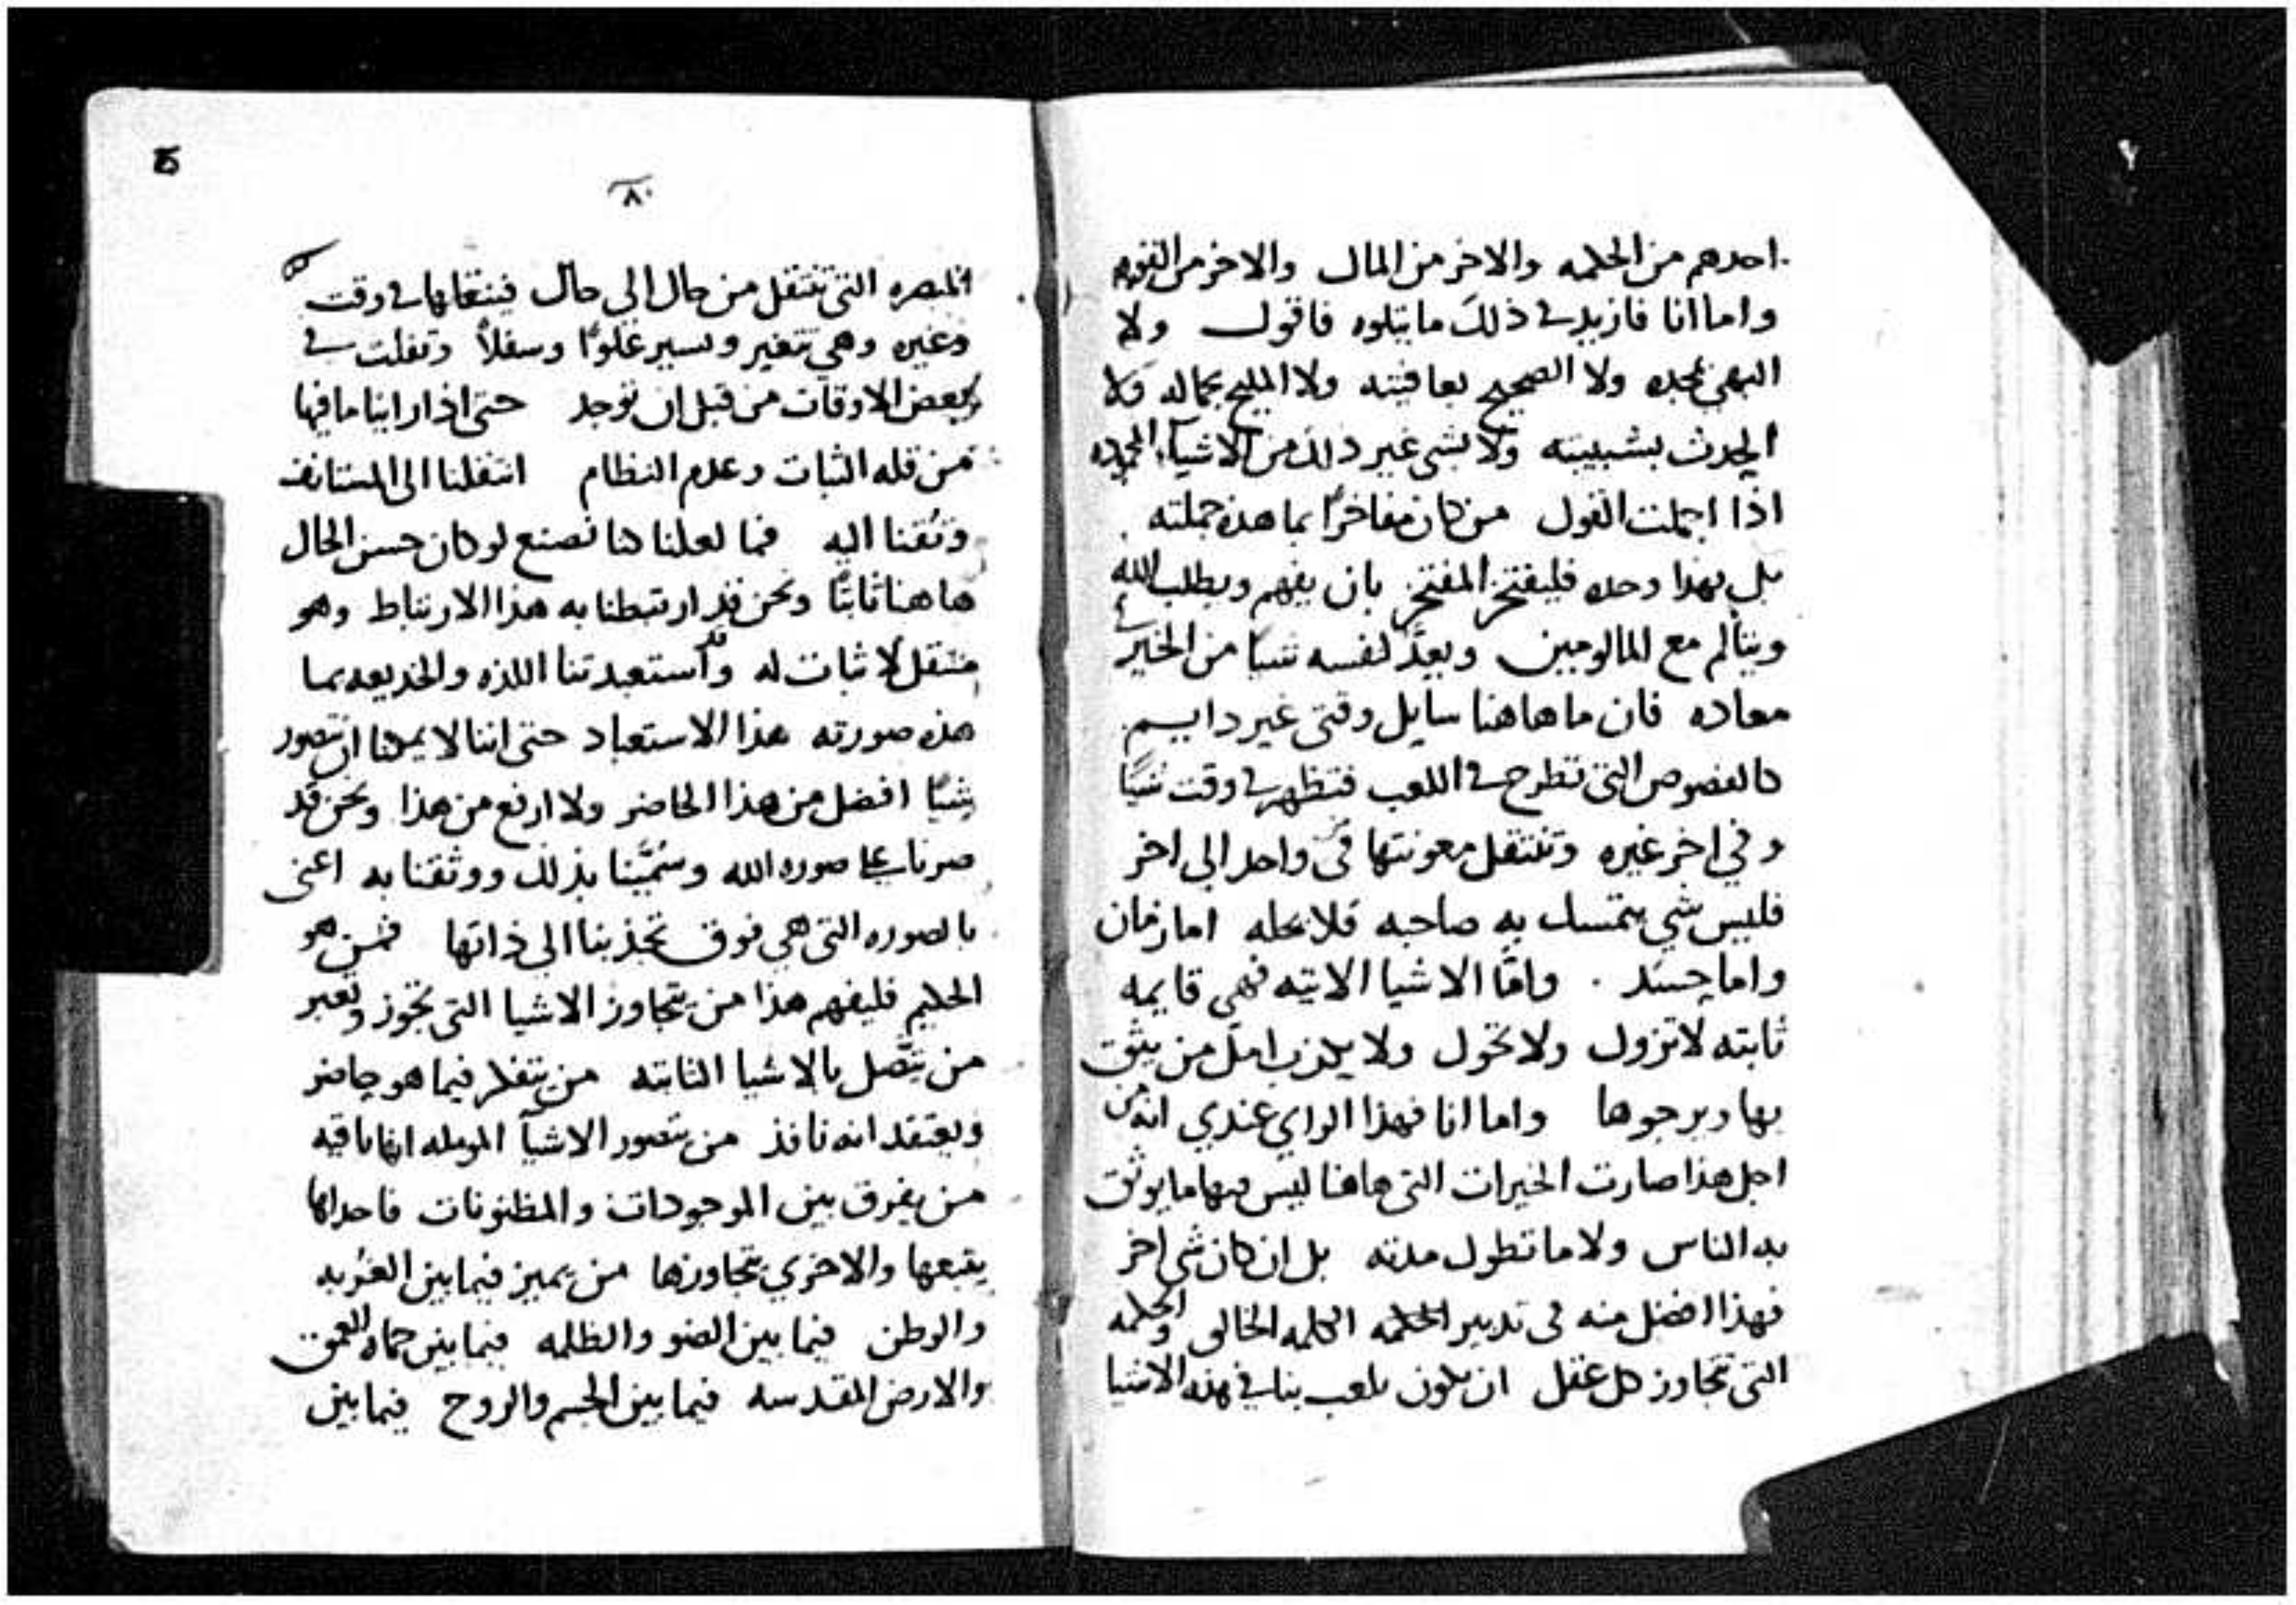 احدهم من الحكمه والاخر من المال والاخر من القوه
واما انا فازيد في ذلك ما يتلوه فاقول ولا
البهي بمجده ولا الصحيح بعافيته ولا المليح بجماله ولا
الحدث بشبيبته ولا بشي غير ذلك من الاشيآء المحموده
اذا اجملت القول من كان مفاخرًا بما هذه جملته
بل بهذا وحده فليفتخر المفتخر بان يفهم ويطلب الله
ويتألم مع المالومين ويعدَّ لنفسه شيًا من الخير في
معاده فان ما هاهنا سايل وقتي غير دايم
كالفصوص التي تطرح في اللعب فتظهر في وقت شيًا
وفي اخر غيره وتنتقل معونتها من واحد الى اخر
فليس شي يتمسك به صاحبه فلا يحله اما زمان
واما حسد . وامَّا الاشيا الاتيه فهي قايمه
ثابته لا تزول ولا تحول ولا يكذب امل من يثق
بها ويرجوها واما انا فهذا الراي عندي انه من
اجل هذا صارت الخيرات التي هاهنا ليس فيها ما يوثق
به الناس ولا ما تطول مدته بل ان كان شي اخر
فهذا افضل منه في تدبير الحكمه الكلمه الخالق والحكمه
التي تجاوز كل عقل ان يكون يلعب بنا في هذه الاشيا
٨٠
المبصره التي تنتقل من حال الى حال فينقلها في وقت
وغيره وهي تتغير وتسير علوًا وسفلاً وتفلت في
بعض الاوقات من قبل ان توجد حتى اذا راينا ما فيها
من قله الثبات وعدم النظام انتقلنا الى المستانف
وتُقنا اليه فما لعلنا كنا نصنع لو كان حسن الحال
هاهنا ثابتًا ونحن قد ارتبطنا به هذا الارتباط وهو
منتقل لا ثبات له وقد استعبدتنا اللذه والخديعه بما
هذه صورته هذا الاستعباد حتى اننا لا يمكنا ان نتصور
شيًا افضل من هذا الحاضر ولا ارفع من هذا ونحن قد
صرنا على صوره الله وسُمّينا بذلك ووثقنا به اعني
بالصوره التي هي فوق تجذبنا الى ذاتها فمن هو
الحكيم فليفهم هذا من يتجاوز الاشيا التي تجوز وتعبر
من يتَّصل بالاشيا الثابته من يتفكر فيما هو حاضر
ويعتقد انه نافذ من يتصور الاشيآ المومله انها باقيه
من يفرق بين الموجودات والمظنونات فاحداها
يتبعها والاخرى يتجاوزها من يميز فيما بين الغربه
والوطن فيما بين الضو والظلمه فيما بين حماه العمق
والارض المقدسه فيما بين الجسم والروح فيما بين